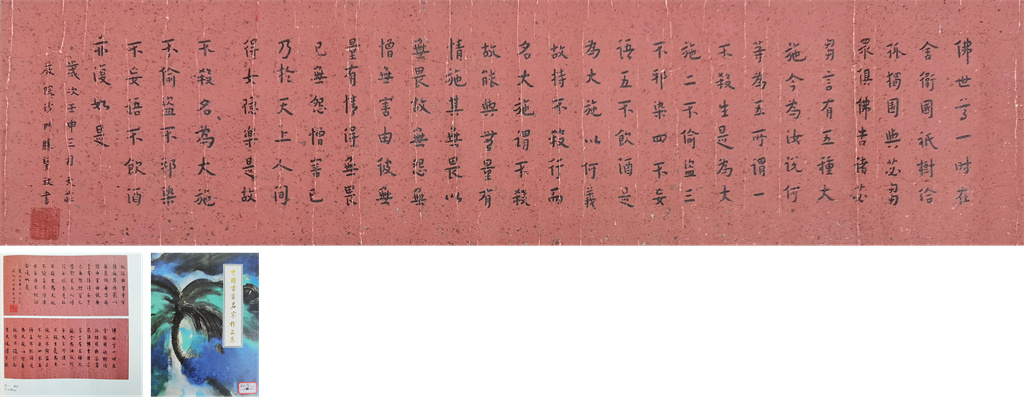 佛世尊一時在
舍衛國祇樹給
孤獨園與苾芻
眾俱佛告諸苾
芻言有五種大
施今為汝說何
等為五所謂一
不殺生是為大
施二不偷盜三
不邪染四不妄
語五不飲酒是
為大施以何義
故持不殺行而
名大施謂不殺
故能與無量有
情施其無畏以
無畏故無怨無
憎無害由彼無
量有情得無畏
已無怨憎害已
乃於天上人間
得安隱樂是故
不殺名為大施
不偷盜不邪染
不妄語不飲酒
亦復如是
歲次壬申三月於
書
中國書畫名家作品集